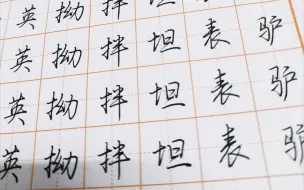 英拗拌坦表驴
英拗拌坦表驴
英拗拌坦表驴
英拗拌坦表驴